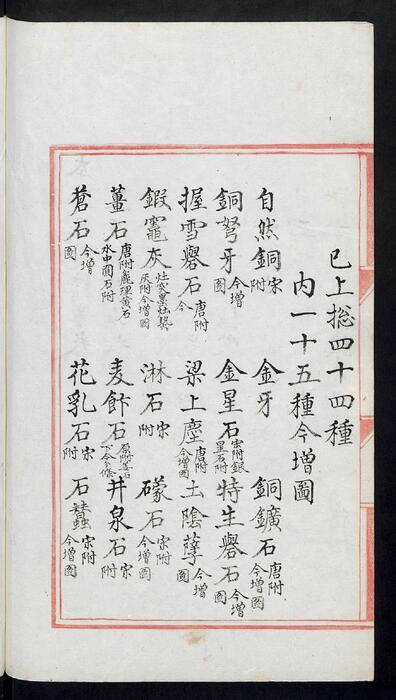 已上捴四十四種
内一十五種今增圖
自然銅 宋附 金牙 銅鑛石 唐附今增圖
銅弩牙 今增圖 金星石 宋附銀星石附 特生礜石 今增圖
握雪礜石 唐附今 梁上塵 唐附今增圖 土陰孽 今增圖
鍜竈灰 灶突墨灶灰附今增圖 淋石 宋附 礞石 宋附今增圖
薑石 唐附麄理黄石水中圓石附 麦飰石 原附薑石下今分條 井泉石 宋附
蒼石 今增圖 花乳石 宋附 石蠶 宋附今增圖